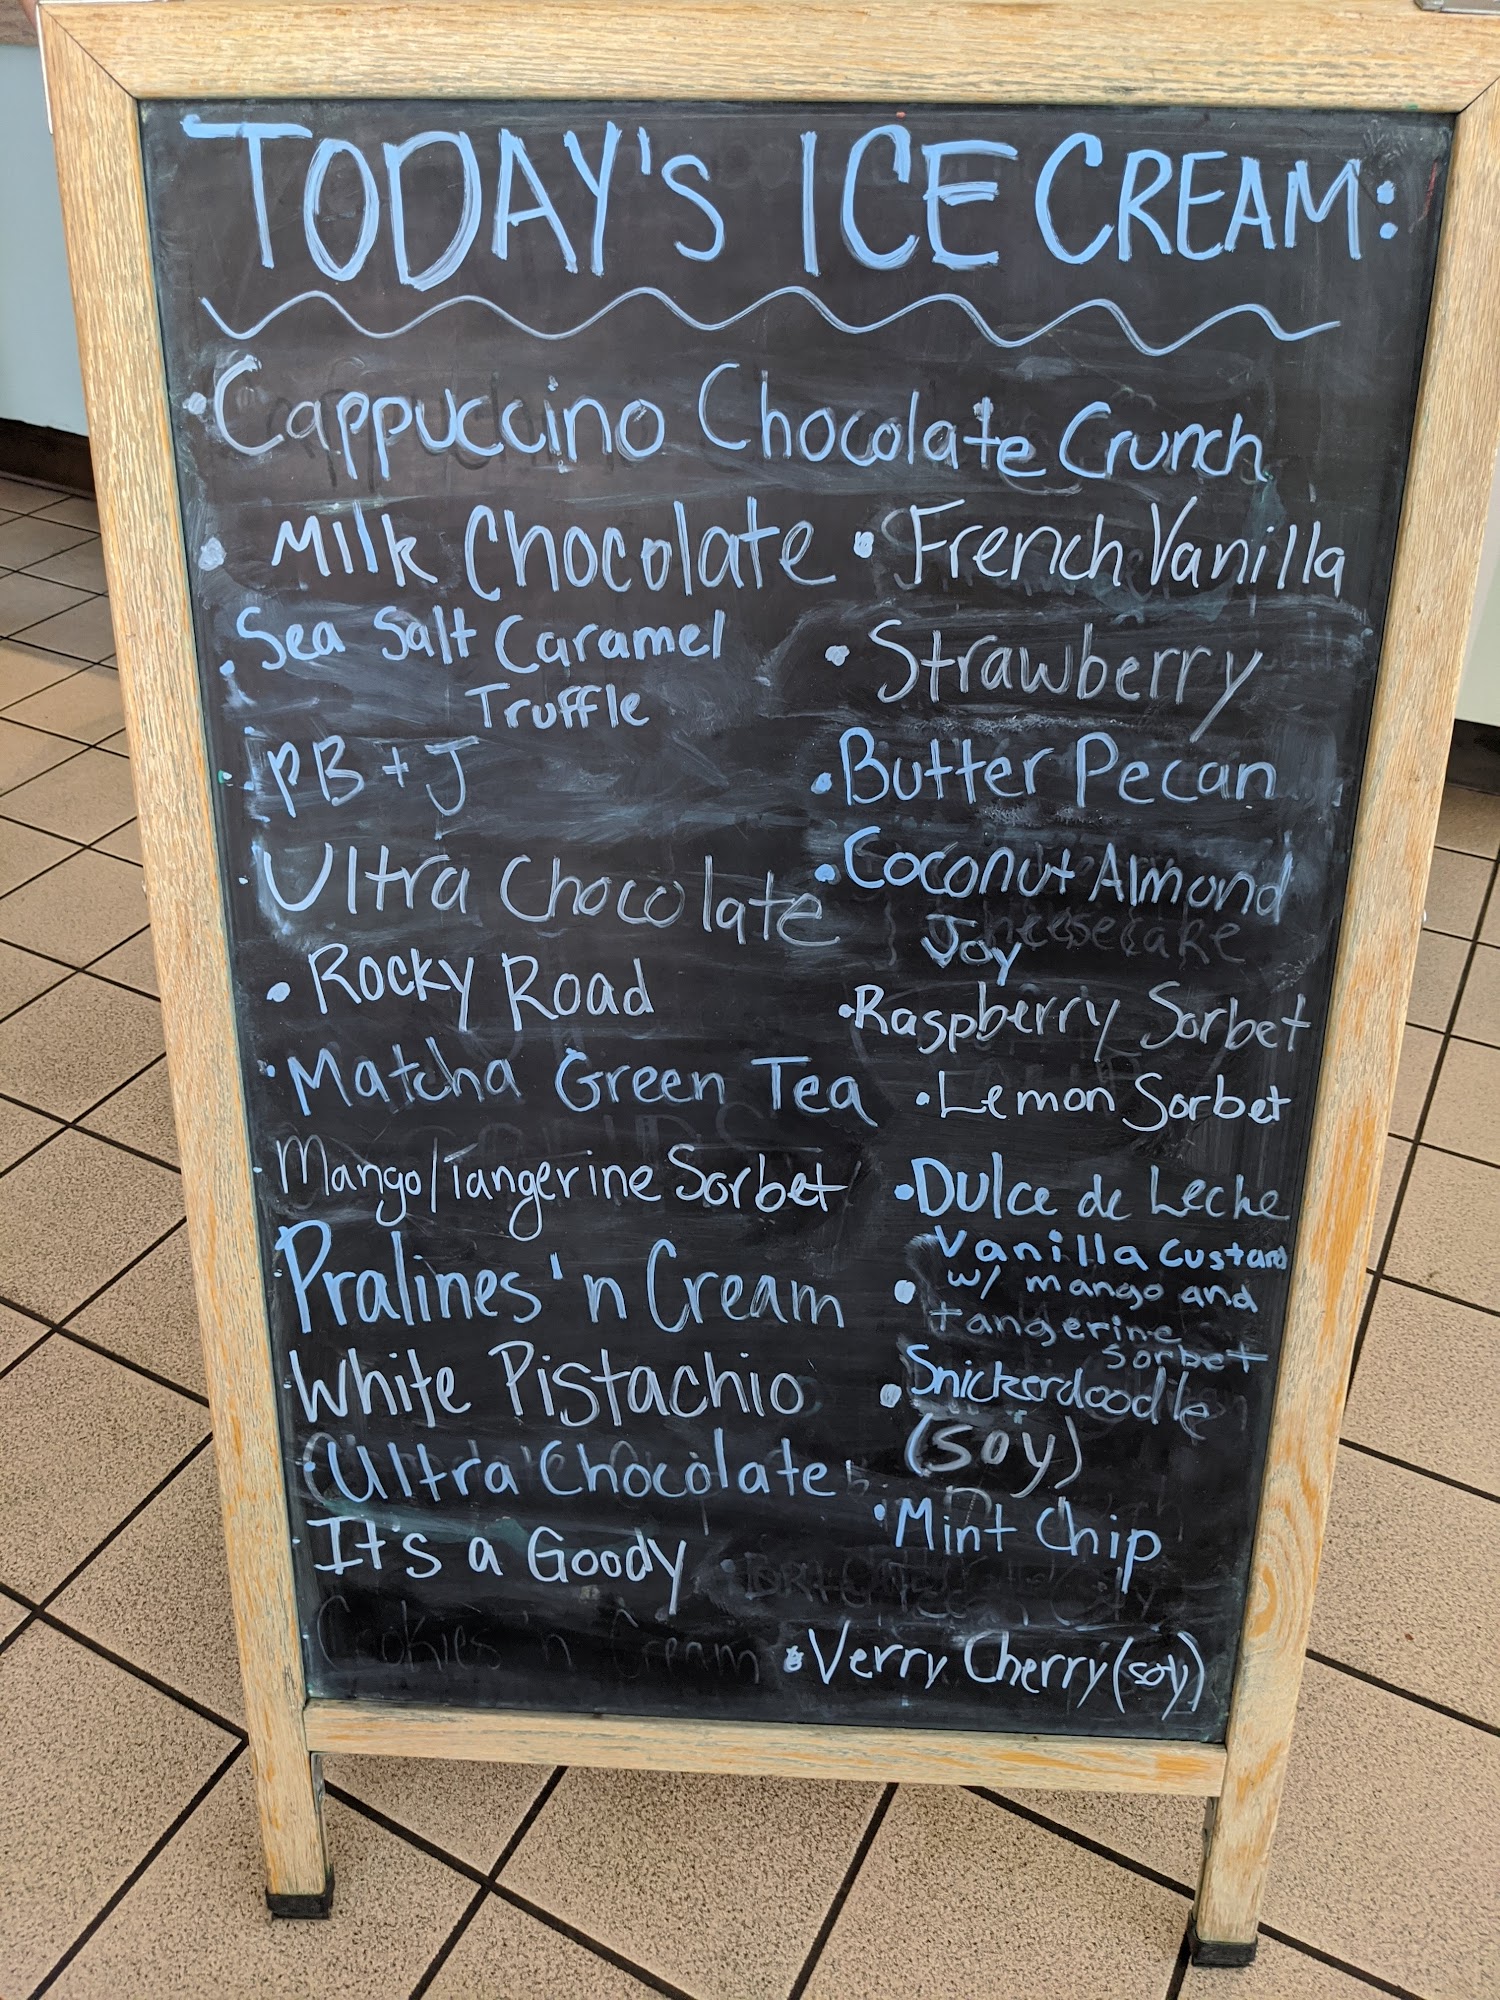 TODAY'S ICE CREAM:
• Cappuccino Chocolate Crunch
• Milk Chocolate
• Sea Salt Caramel
Truffle
• PB + J
• Ultra Chocolate
• Rocky Road
• Matcha Green Tea
• Mango/Tangerine Sorbet
• Pralines 'n Cream
• White Pistachio
• Ultra Chocolate
• It's a Goody
Cookies 'n Cream
• French Vanilla
• Strawberry
• Butter Pecan
• Coconut Almond
Joy
Cheesecake
• Raspberry Sorbet
• Lemon Sorbet
• Dulce de Leche
• Vanilla Custard
w/ mango and
tangerine
sorbet
• Snickerdoodle
(soy)
• Mint Chip
• Verry Cherry (soy)